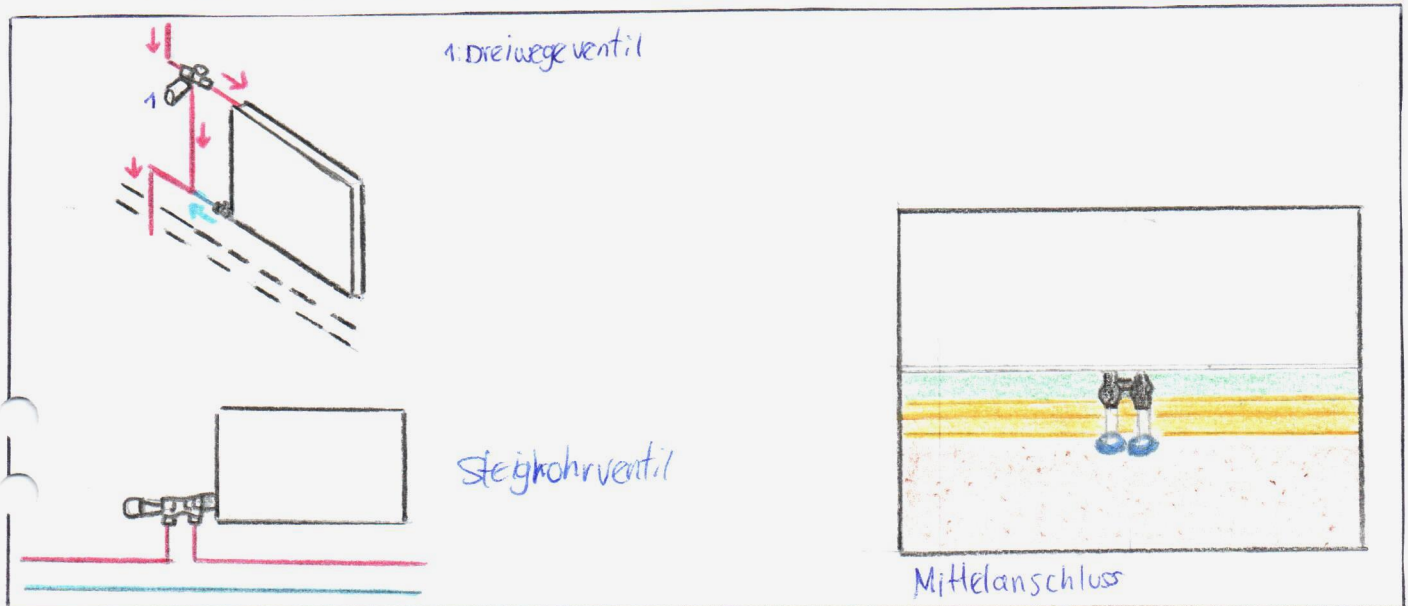 1: Dreiwegeventil
1
Steigrohrventil
Mittelanschluss